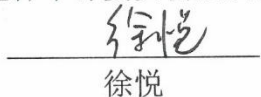 徐悦
徐悦